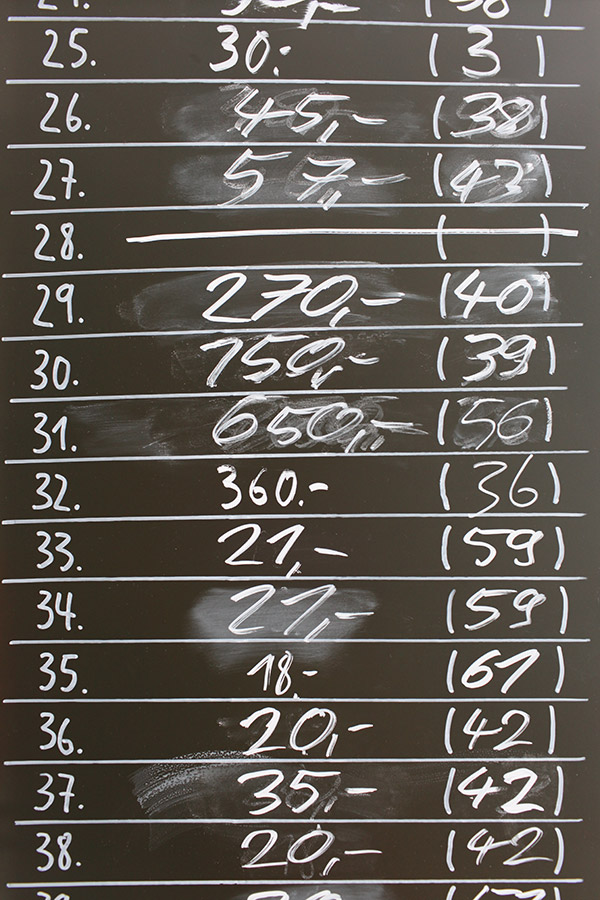 25. 30.- ( 3 )
26. 45,- (38)
27. 57,- (42)
28. ( )
29. 270,- (40)
30. 150,- (39)
31. 650,- (56)
32. 360.- (36)
33. 21,- (59)
34. 21,- (59)
35. 18.- (61)
36. 20,- (42)
37. 35,- (42)
38. 20,- (42)